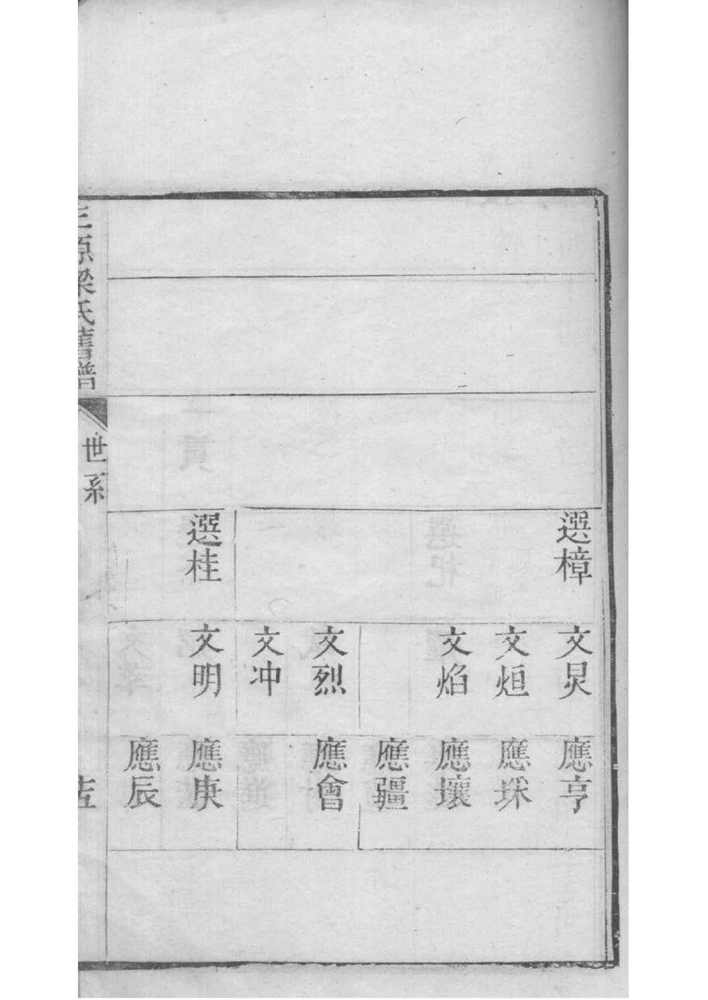 選樟
文炅
應亨
文烜
應垛
文焰
應壤
應疆
文烈
應會
文冲
選桂
文明
應庚
應辰
三原梁氏舊譜
世系